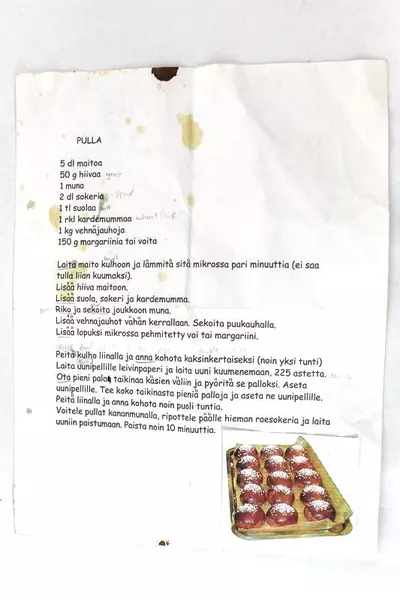 PULLA
5 dl maitoa
50 g hiivaa
1 muna
2 dl sokeria
1 tl suolaa
1 rkl kardemummaa
1 kg vehnäjauhoja
150 g margariinia tai voita
Laita maito kulhoon ja lämmitä sitä mikrossa pari minuuttia (ei saa
tulla liian kuumaksi).
Lisää hiiva maitoon.
Lisää suola, sokeri ja kardemumma.
Riko ja sekoita joukkoon muna.
Lisää vehnäjauhot vähän kerrallaan. Sekoita puukauhalla.
Lisää lopuksi mikrossa pehmitetty voi tai margariini.
Peitä kulho liinalla ja anna kohota kaksinkertaiseksi (noin yksi tunti)
Laita uunipellille leivinpaperi ja laita uuni kuumenemaan, 225 astetta.
Ota pieni pala taikinaa käsien väliin ja pyöritä se palloksi. Aseta
uunipellille. Tee koko taikinasta pieniä palloja ja aseta ne uunipellille.
Peitä liinalla ja anna kohota noin puoli tuntia.
Voitele pullat kananmunalla, ripottele päälle hieman raesokeria ja laita
uuniin paistumaan. Paista noin 10 minuuttia.